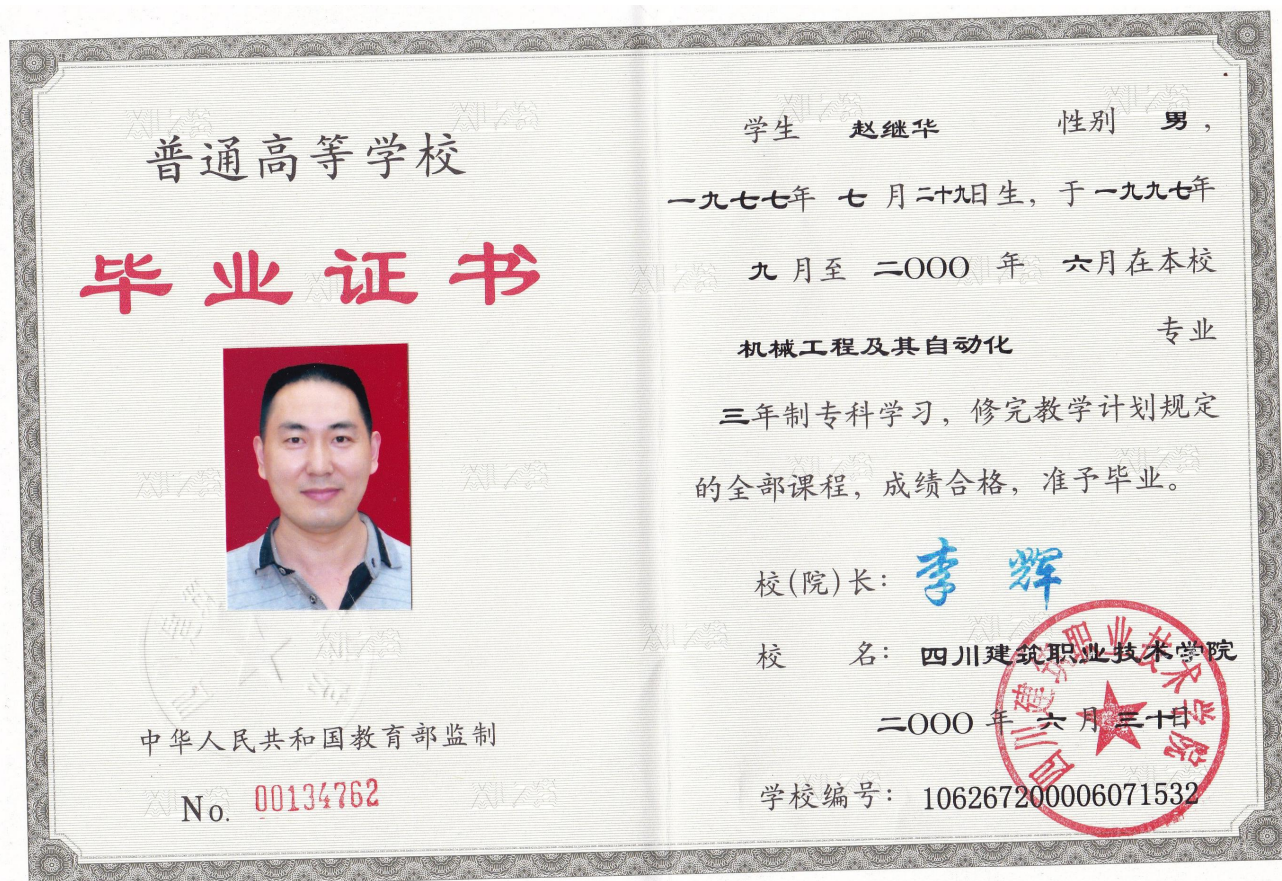 普通高等学校
毕业证书
中华人民共和国教育部监制
No. 00134762
学生 赵继华 性别 男,
一九七七年 七 月二十九日生, 于一九九七年
九 月至 二OOO 年 六月在本校
机械工程及其自动化 专业
三年制专科学习, 修完教学计划规定
的全部课程, 成绩合格, 准予毕业。
校(院)长: 李 辉
校 名: 四川建筑职业技术学院
二OOO 年 六 月 三十日
学校编号: 106267200006071532
四川建筑职业技术学院